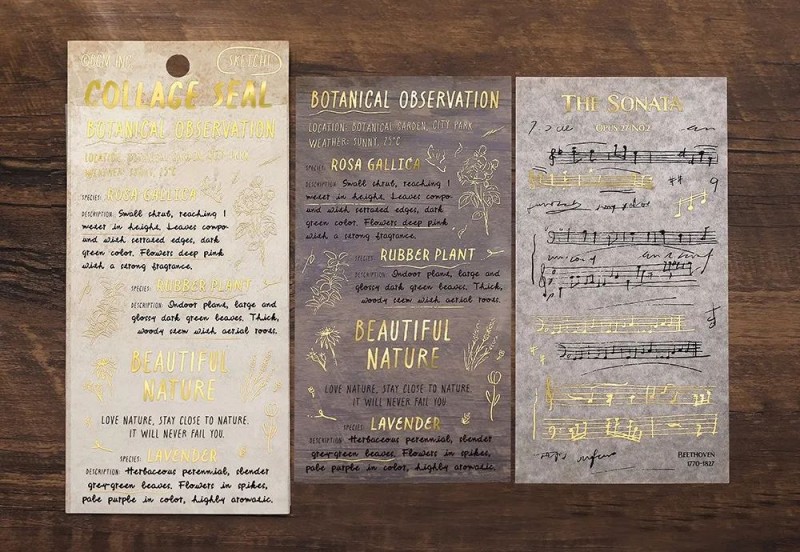 ©BGM INC.
SKETCH
COLLAGE SEAL
BOTANICAL OBSERVATION
LOCATION: BOTANICAL GARDEN, CITY PARK
WEATHER: SUNNY, 25°C
SPECIES: ROSA GALLICA
DESCRIPTION: Small shrub, reaching 1
meter in height. Leaves compo-
und with serrated edges, dark
green color. Flowers deep pink
with a strong fragrance.
SPECIES: RUBBER PLANT
DESCRIPTION: Indoor plant, large and
glossy dark green leaves. Thick,
woody stem with aerial roots.
BEAUTIFUL
NATURE
LOVE NATURE, STAY CLOSE TO NATURE.
IT WILL NEVER FAIL YOU.
SPECIES: LAVENDER
DESCRIPTION: Herbaceous perennial, slender
grey-green leaves. Flowers in spikes,
pale purple in color, highly aromatic.
BOTANICAL OBSERVATION
LOCATION: BOTANICAL GARDEN, CITY PARK
WEATHER: SUNNY, 25°C
SPECIES: ROSA GALLICA
DESCRIPTION: Small shrub, reaching 1
meter in height. Leaves compo-
und with serrated edges, dark
green color. Flowers deep pink
with a strong fragrance.
SPECIES: RUBBER PLANT
DESCRIPTION: Indoor plant, large and
glossy dark green leaves. Thick,
woody stem with aerial roots.
BEAUTIFUL
NATURE
LOVE NATURE, STAY CLOSE TO NATURE.
IT WILL NEVER FAIL YOU.
SPECIES: LAVENDER
DESCRIPTION: Herbaceous perennial, slender
grey-green leaves. Flowers in spikes,
pale purple in color, highly aromatic.
THE SONATA
OPUS 27 NO.2
BEETHOVEN
1770-1827